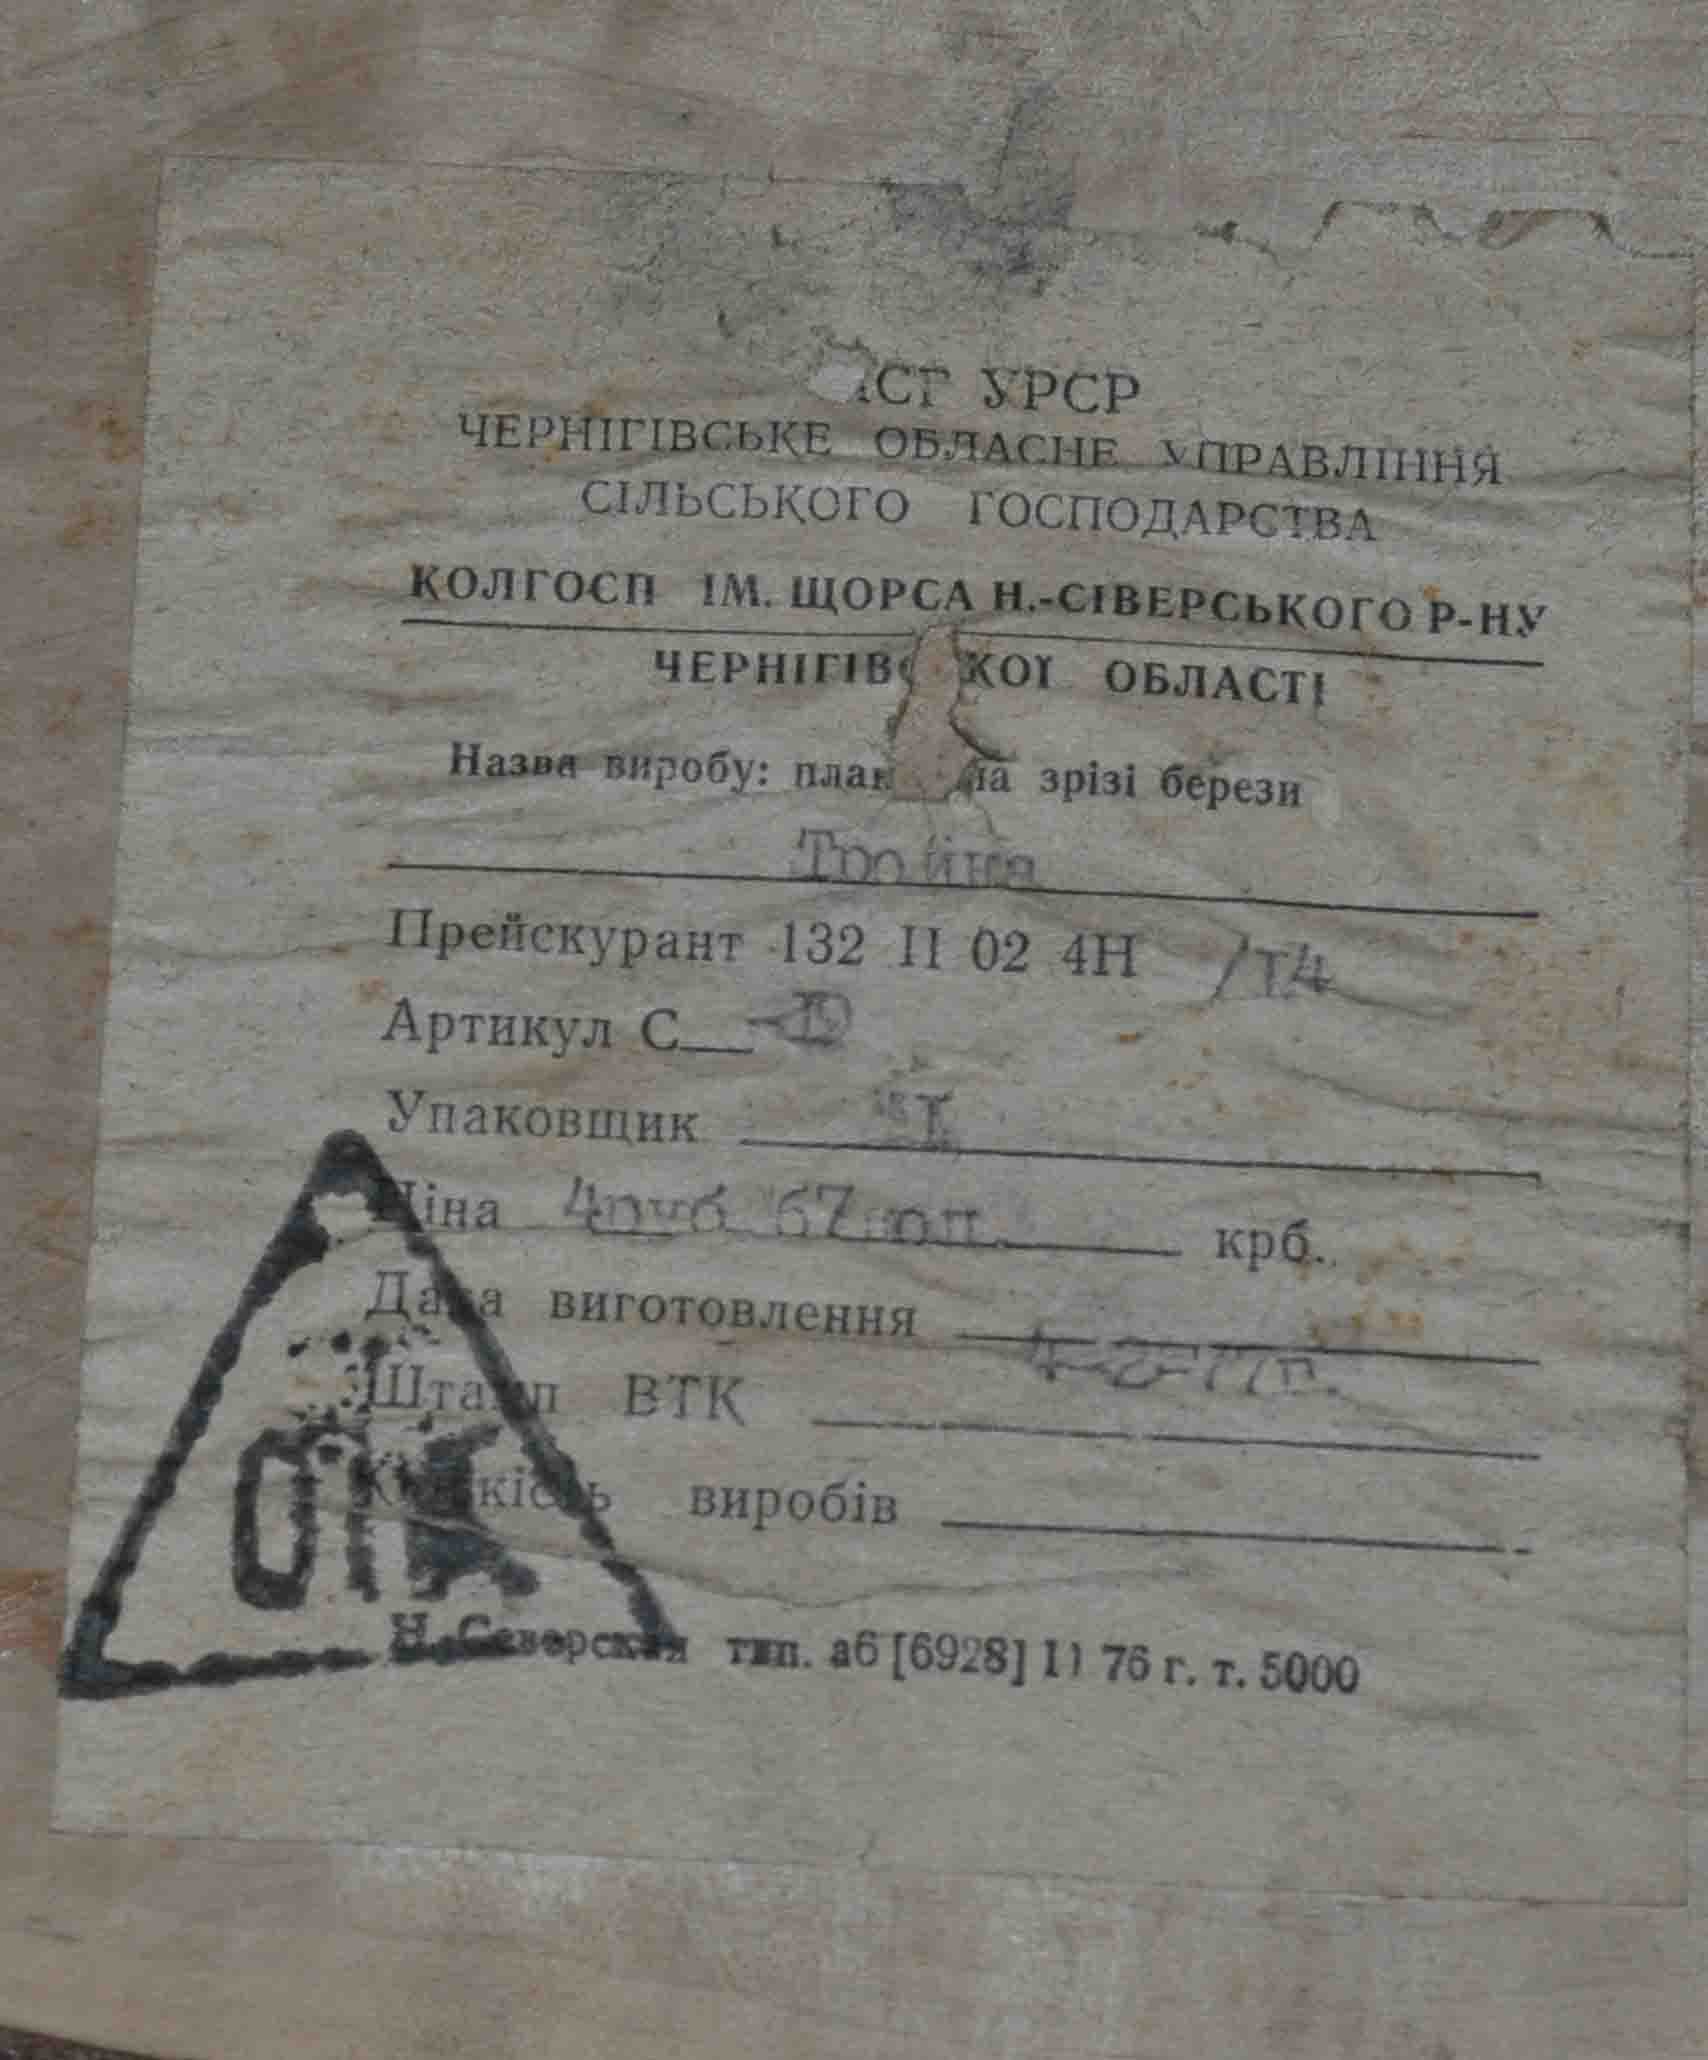 СГ УРСР
ЧЕРНІГІВСЬКЕ ОБЛАСНЕ УПРАВЛІННЯ
СІЛЬСЬКОГО ГОСПОДАРСТВА
КОЛГОСП ІМ. ЩОРСА Н.-СІВЕРСЬКОГО Р-НУ
ЧЕРНІГІВСЬКОЇ ОБЛАСТІ
Назва виробу: на зрізі берези
Тройка
Прейскурант 132 II 02 4Н /Т4
Артикул С
Упаковщик
Ціна 4руб 67коп. крб.
Дата виготовлення
Штамп ВТК
ОТК
Кількість виробів
Н.-Северская тип. аб [6928] 11 76 г. т. 5000